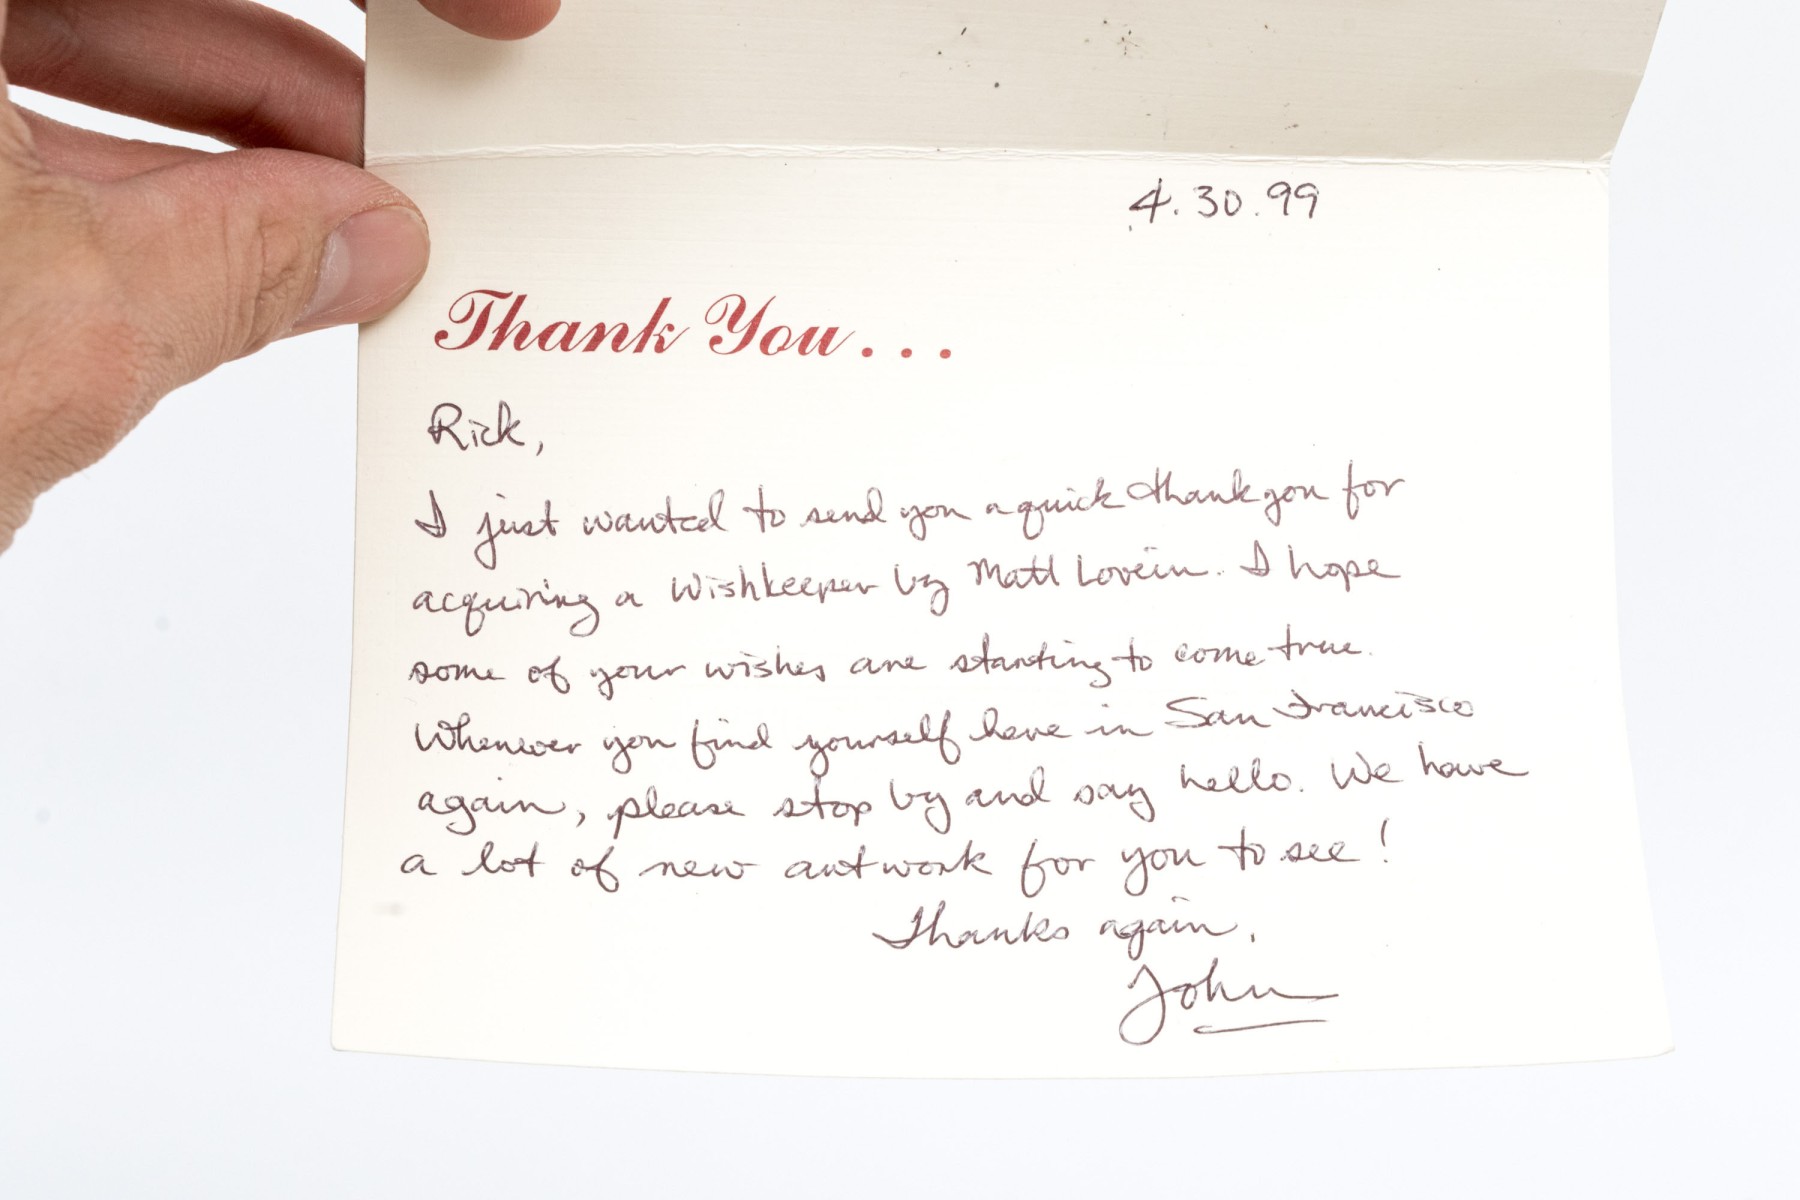 4.30.99
Thank You...
Rick,
I just wanted to send you a quick thank you for
acquiring a Wishkeeper by Matt Lovein. I hope
some of your wishes are starting to come true.
Whenever you find yourself here in San Francisco
again, please stop by and say hello. We have
a lot of new artwork for you to see!
Thanks again,
John